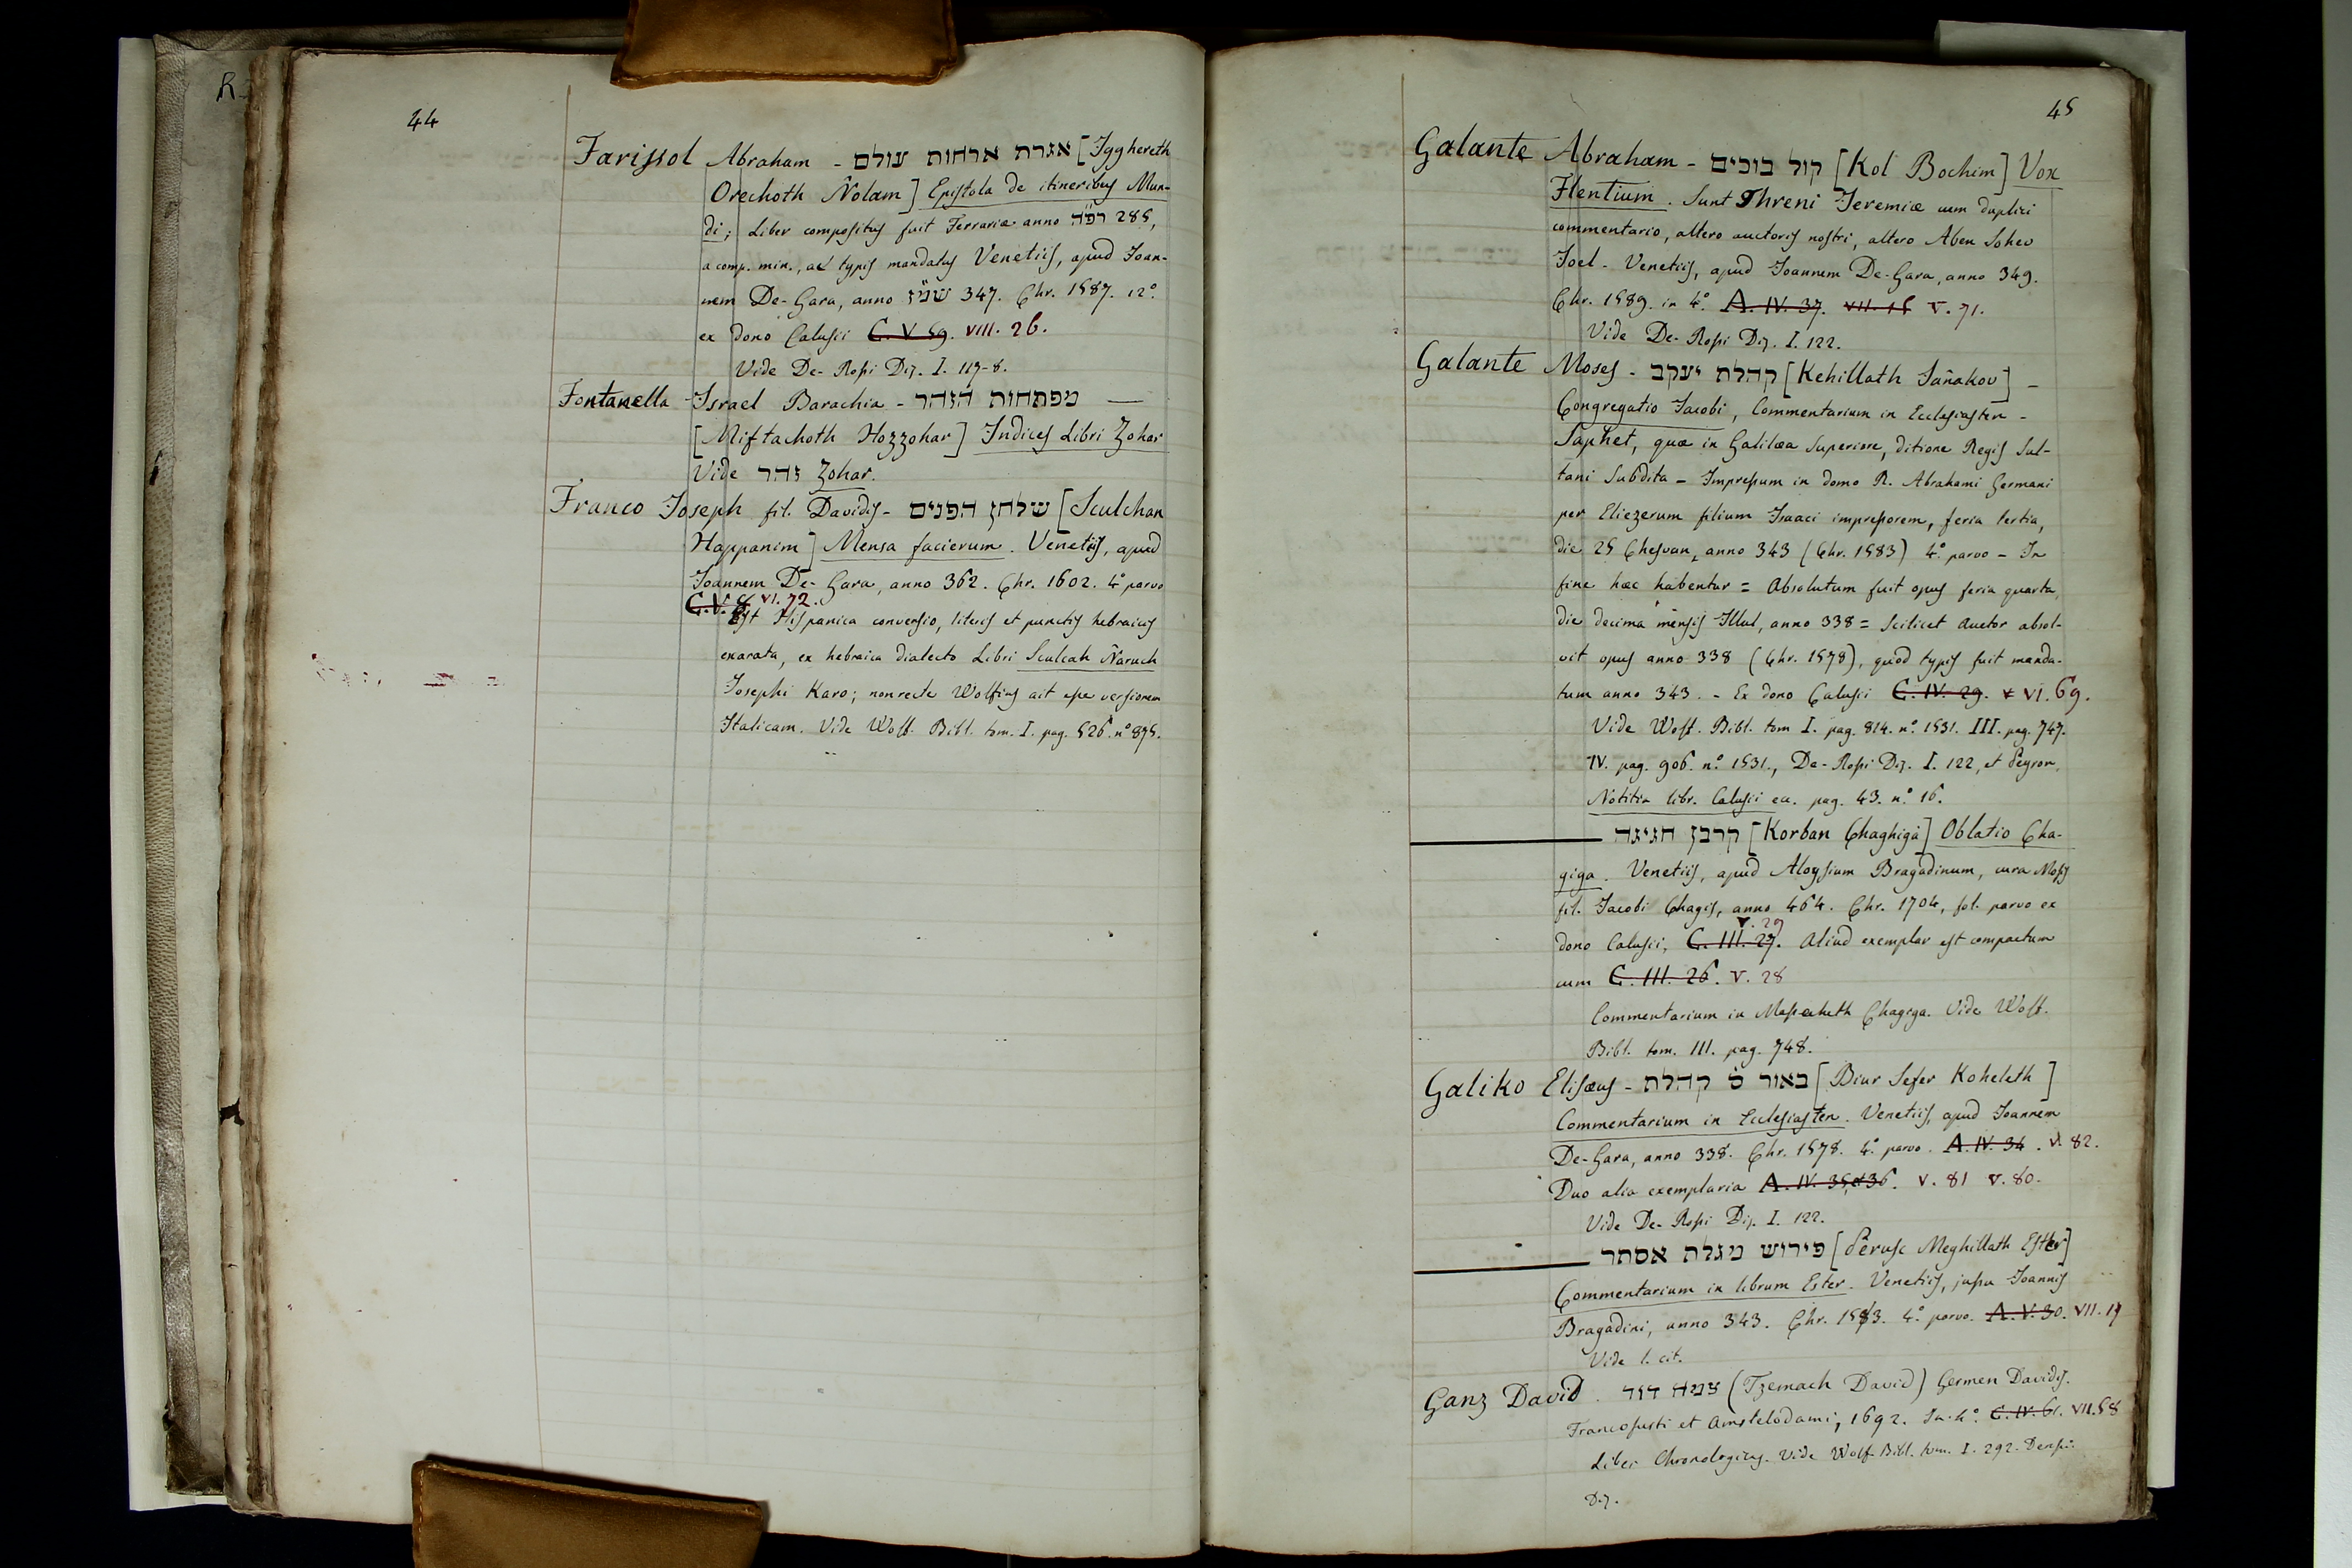 44
Farissol Abraham - אגרת ארחות עולם [Igghereth
Orechoth Ñolam] Epistola de itineribus Mun-
di; Liber compositus fuit Ferrariæ anno רפ״ה 285,
a comp. min., at typis mandatus Venetiis, apud Joan-
nem De-Gara, anno שמ״ז 347. Chr. 1587. 12°.
ex dono Calusii C. V. 59. VIII. 26.
Vide De-Rossi Diz. I. 117-8.
Fontanella Israel Barachia - מפתחות הזהר —
[Miftachoth Hozzohar] Indices Libri Zohar
Vide זהר Zohar.
Franco Joseph fil. Davidis - שלחן הפנים [Sculchan
Happanim] Mensa facierum. Venetiis, apud
Joannem De-Gara, anno 362. Chr. 1602. 4° parvo
C. V. 8 VI. 72.
Est Hispanica conversio, literis et punctis hebraicis
exarata, ex hebraica dialecto Libri Sculcah Ñaruch
Josephi Karo; non recte Wolfius ait esse versionem
Italicam. Vide Wolf. Bibl. tom. I. pag. 526. n° 875.
45
Galante Abraham - קול בוכים [Kol Bochim] Vox
Flentium. Sunt Threni Jeremiæ cum duplici
commentario, altero auctoris nostri, altero Aben Sohev
Joel. Venetiis, apud Joannem De-Gara, anno 349.
Chr. 1589. in 4°. A. IV. 37. VII. 16 V. 71.
Vide De-Rossi Diz. I. 122.
Galante Moses - קהלת יעקב [Kehillath Jañakov] -
Congregatio Jacobi, Commentarium in Ecclesiasten -
Saphet, quæ in Galilæa Superiore, ditione Regis Sul-
tani Subdita - Impressum in domo R. Abrahami Germani
per Eliezerum filium Isaaci impressorem, feria tertia,
die 25 Chesvan, anno 343 (Chr. 1583) 4°. parvo - In
fine hæc habentur = Absolutum fuit opus feria quarta,
die decima mensis Illul, anno 338 = Scilicet auctor absol-
vit opus anno 338 (Chr. 1578), quod typis fuit manda-
tum anno 343. - Ex dono Calusii C. IV. 29. VI. 69.
Vide Wolf. Bibl. tom I. pag. 814. n°. 1531. III. pag. 747.
IV. pag. 906. n°. 1531., De-Rossi Diz. I. 122, et Peyron,
Notitia libr. Calusii ec. pag. 43. n°. 16.
קרבן חגיגה [Korban Chaghiga] Oblatio Cha-
giga. Venetiis, apud Aloysium Bragadinum, cura Mosis
fil. Jacobi Chagis, anno 464. Chr. 1704, fol. parvo ex
V. 29
dono Calusii, C. III. 27. Aliud exemplar est compactum
cum C. III. 26. V. 28
Commentarium in Massecheth Chagiga. Vide Wolf.
Bibl. tom. III. pag. 748.
Galiko Elisæus - באור ס׳ קהלת [Biur Sefer Koheleth]
Commentarium in Ecclesiasten. Venetiis, apud Joannem
De-Gara, anno 338. Chr. 1578. 4°. parvo. A. IV. 34. V. 82.
Duo alia exemplaria A. IV. 35, et 36. V. 81 V. 80.
Vide De-Rossi Diz. I. 122.
פירוש מגלת אסתר [Perusc Meghillath Ester]
Commentarium in librum Ester. Venetiis, jussu Joannis
Bragadini, anno 343. Chr. 1583. 4°. parvo. A. V. 30. VII. 17
Vide l. cit.
Ganz David. צמח דוד (Tzemach David) Germen Davidis.
Francofurti et Amstelodami, 1692. In-4°. C. IV. 61. VII. 58
Liber Chronologicus. Vide Wolf. Bibl. tom. I. 292. Derossi
Diz.